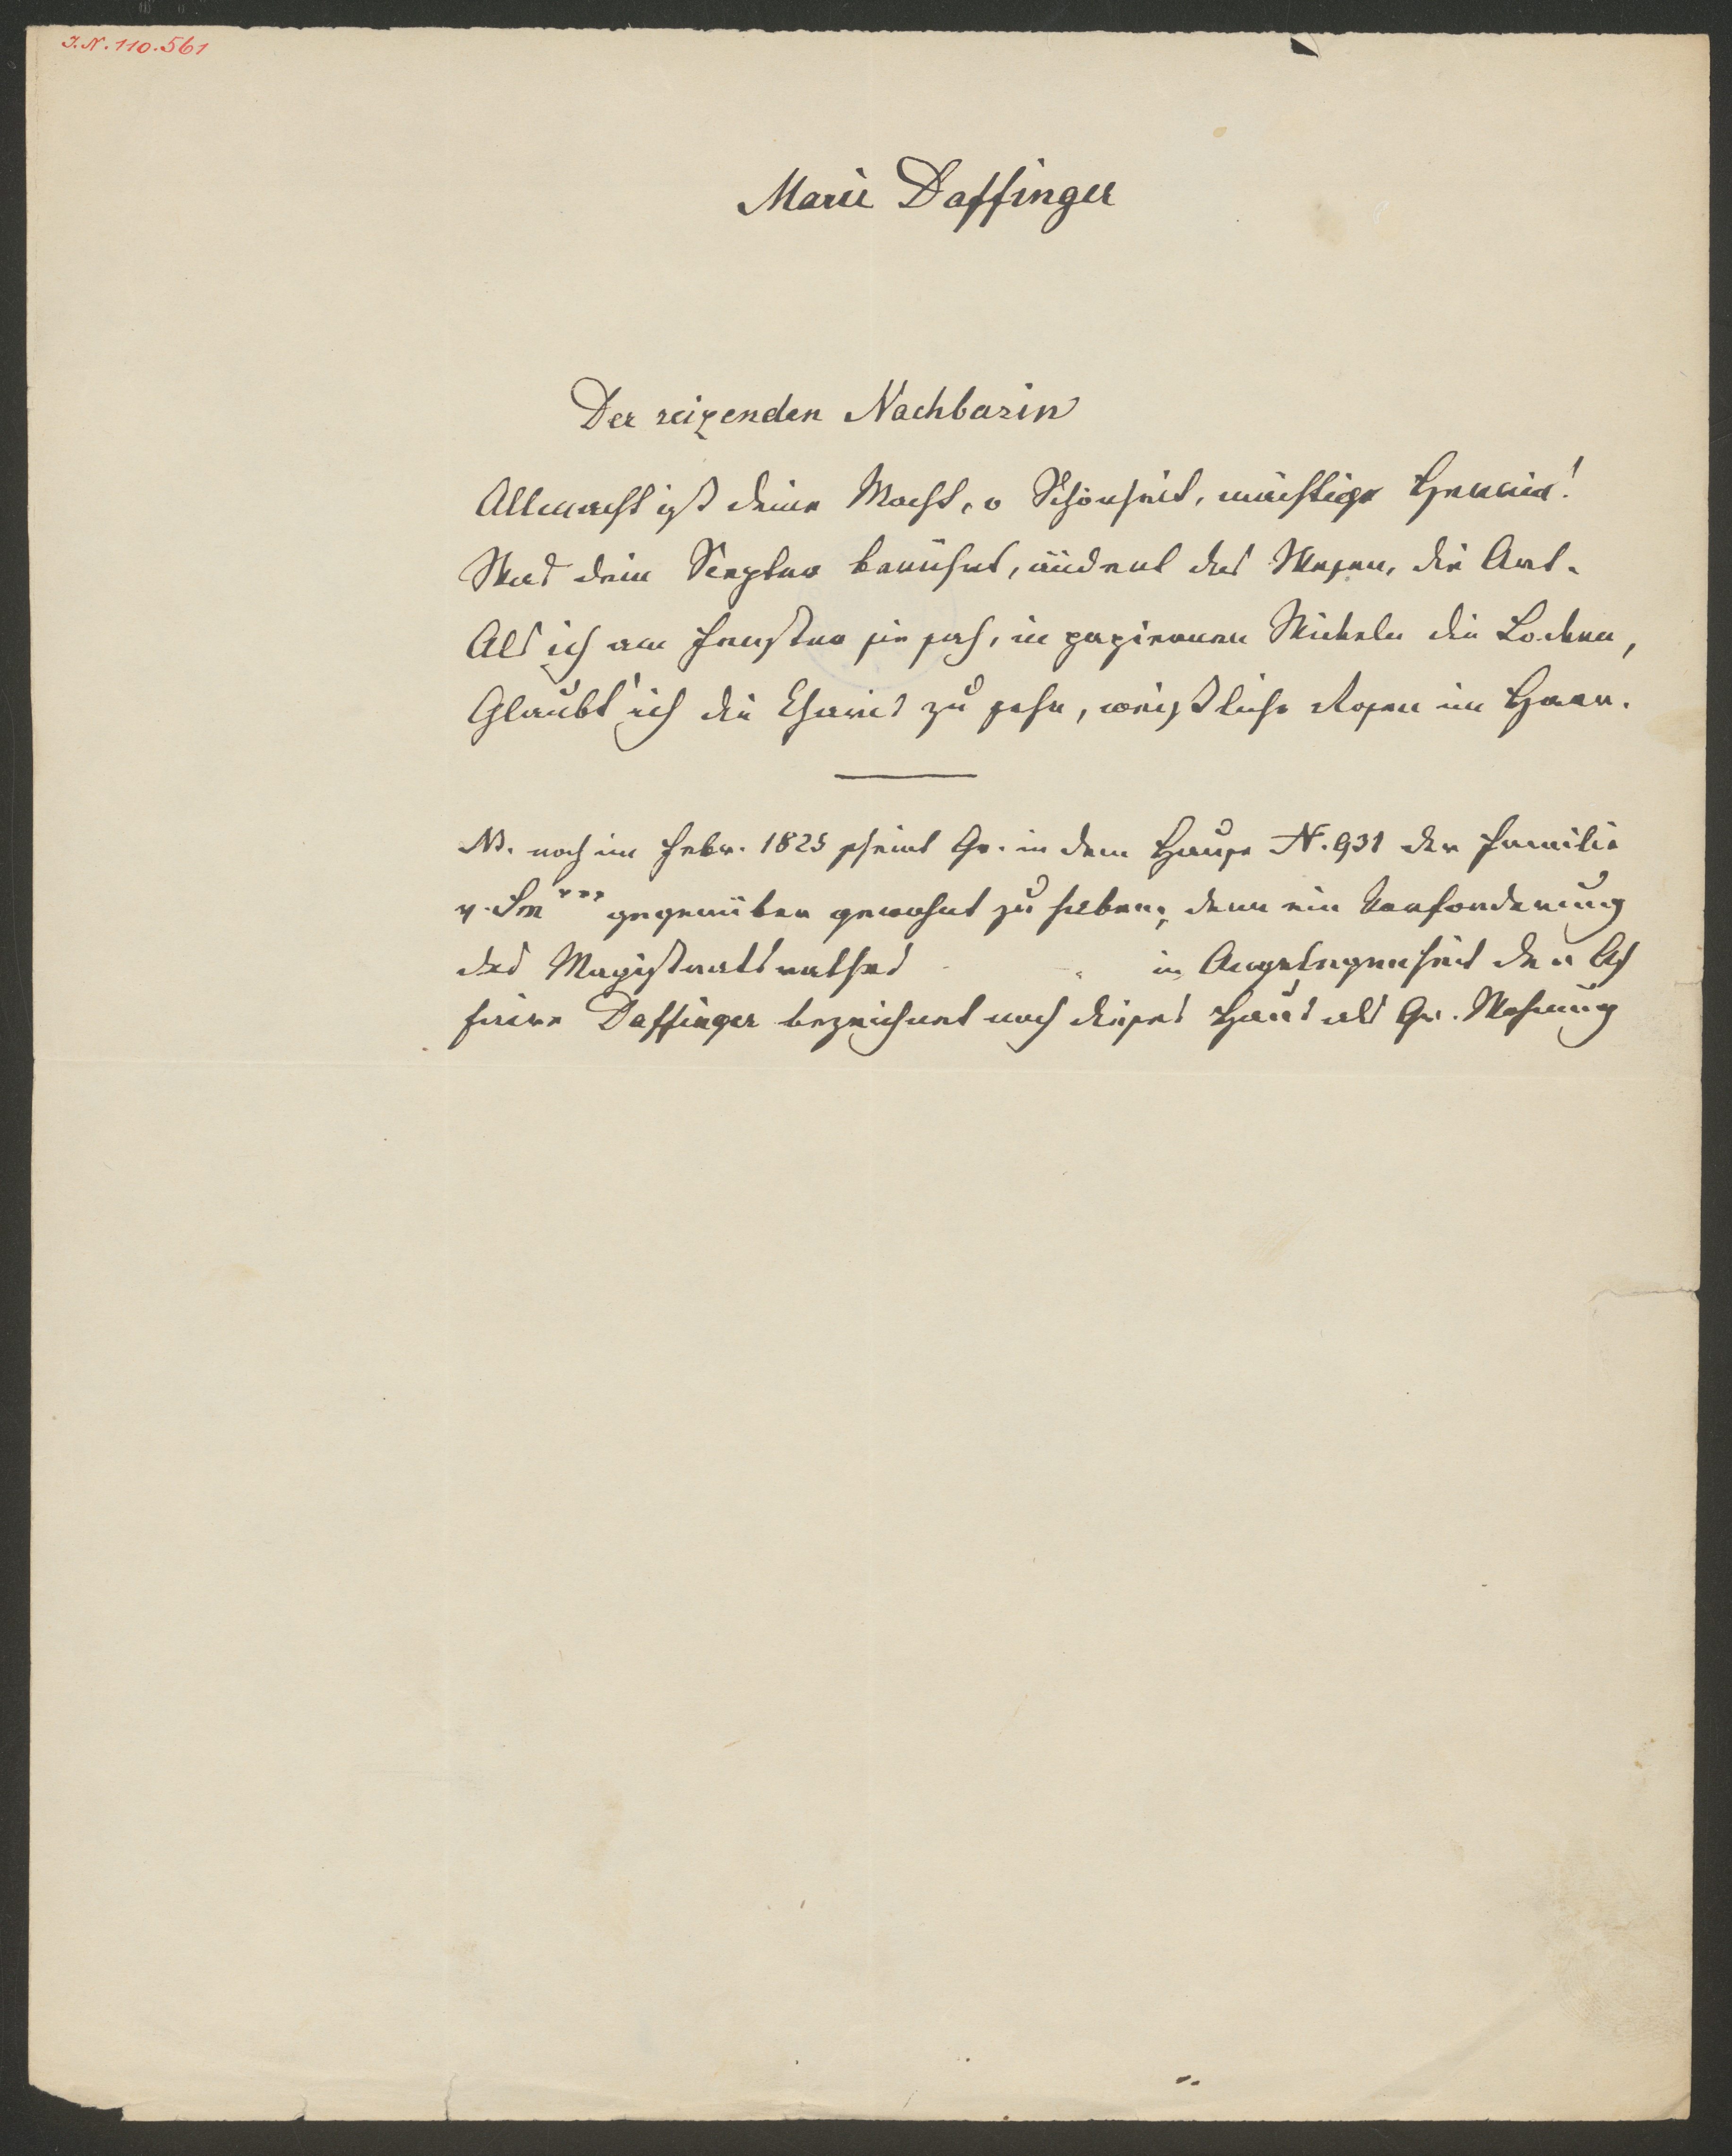 J.N. 110.561
Marie Daffinger
Der reizenden Nachbarin
Allmacht ist deine Macht, o Schönheit, mächtige Herrin!
Was dein Scepter berührt, ändert das Wesen, die Art.
Als ich am Fenster sie sah, in papiernen Wickeln die Locken,
Glaubt' ich die Charis zu sehn, weißliche Rosen im Haar.
NB. noch im Febr. 1825 scheint Gr. in dem Hause N. 931 der Familie
v. Sm*** gegenüber gewohnt zu haben; denn ein Vorforderung
des Magistratsrathes in Angelegenheit der Af
faire Daffinger bezeichnet noch dieses Haus als Gr. Wohnung